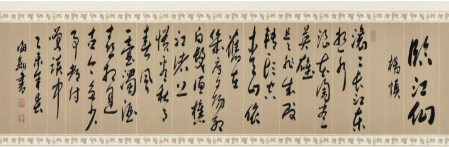 臨江仙
楊慎
滾滾長江東
逝水
浪花淘盡
英雄
是非成敗
轉頭空
青山依
舊在
幾度夕陽
紅
白髮漁樵
江渚上
慣看秋月
春風
一壺濁酒
喜相逢
古今多少
事都付
笑談中